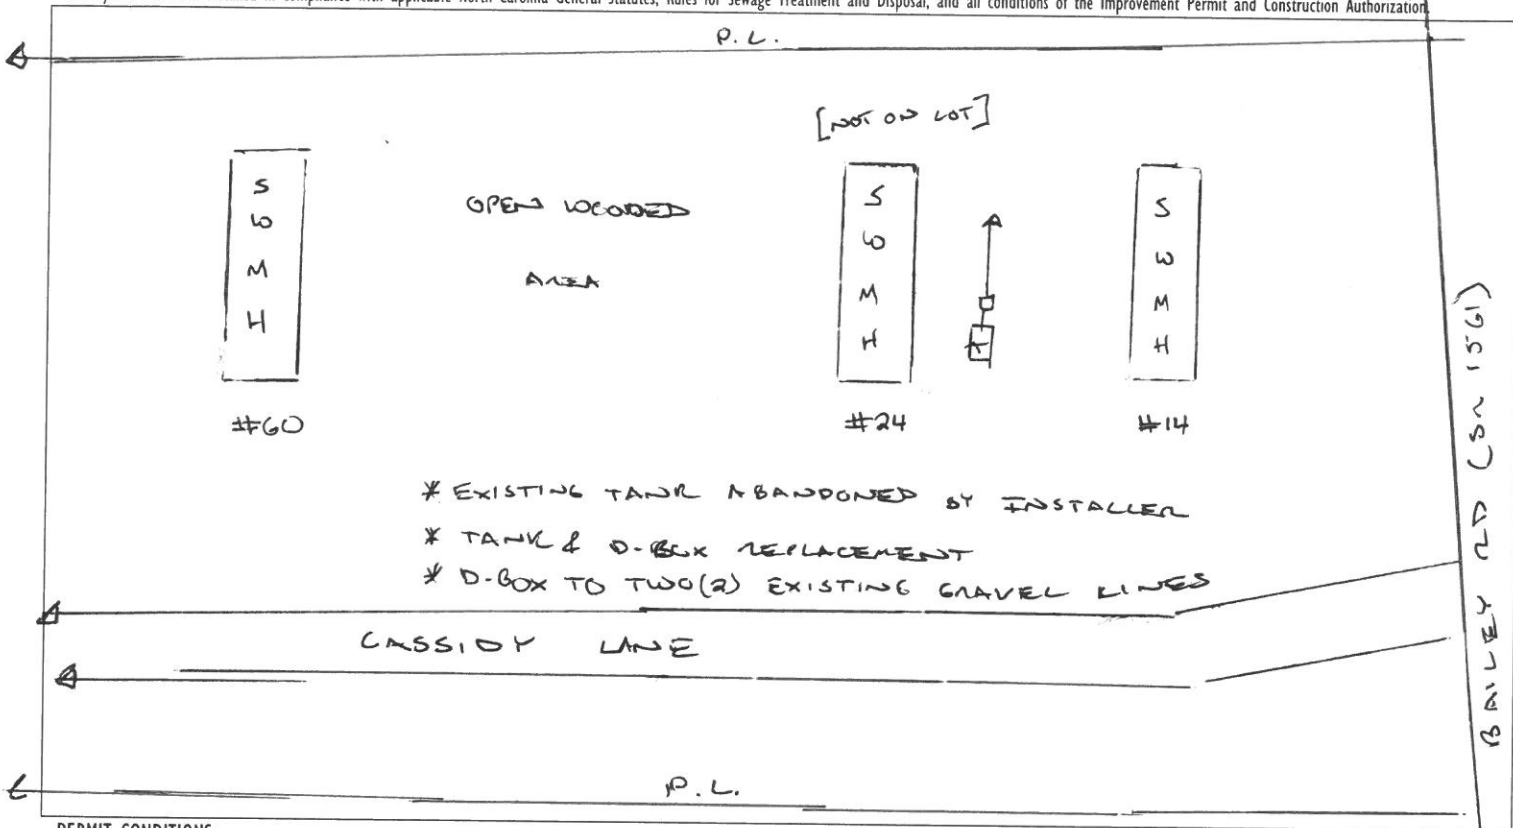 applicable North Carolina General Statutes, Rules for Sewage Treatment and Disposal, and all conditions of the Improvement Permit and Construction Authorization
P.L.
[NOT ON LOT]
S W M H
OPEN WOODED
AREA
S W M H
S W M H
T
#60
#24
#14
* EXISTING TANK ABANDONED BY INSTALLER
* TANK & D-BOX REPLACEMENT
* D-BOX TO TWO(2) EXISTING GRAVEL LINES
CASSIDY LANE
BAILEY RD (SR 1561)
P.L.
PERMIT CONDITIONS